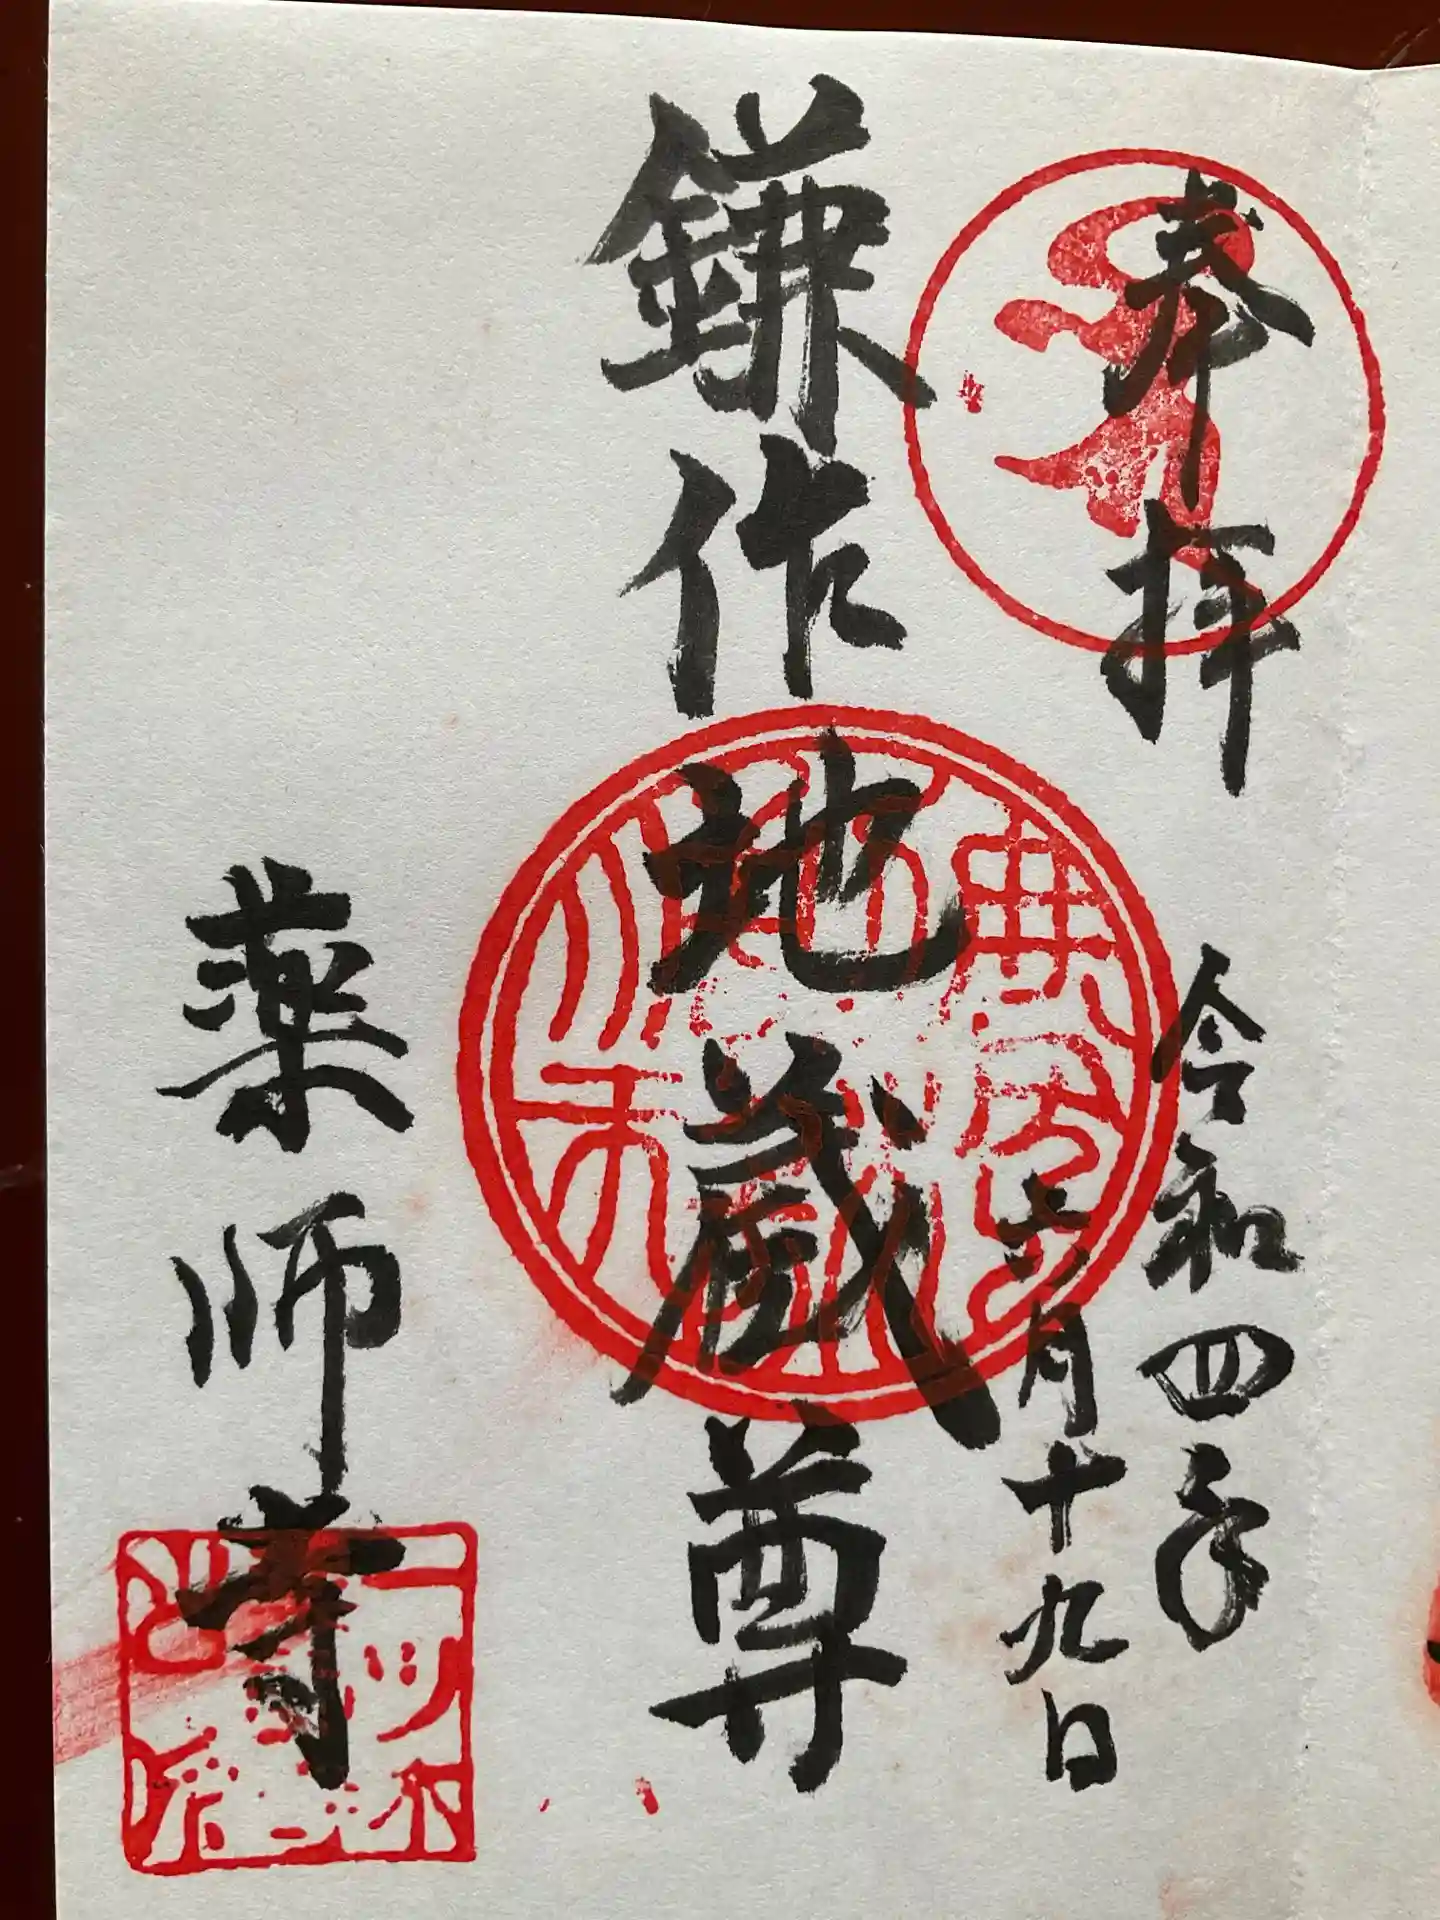 奉拝
令和四年
六月十九日
鎌作地蔵尊
薬師寺